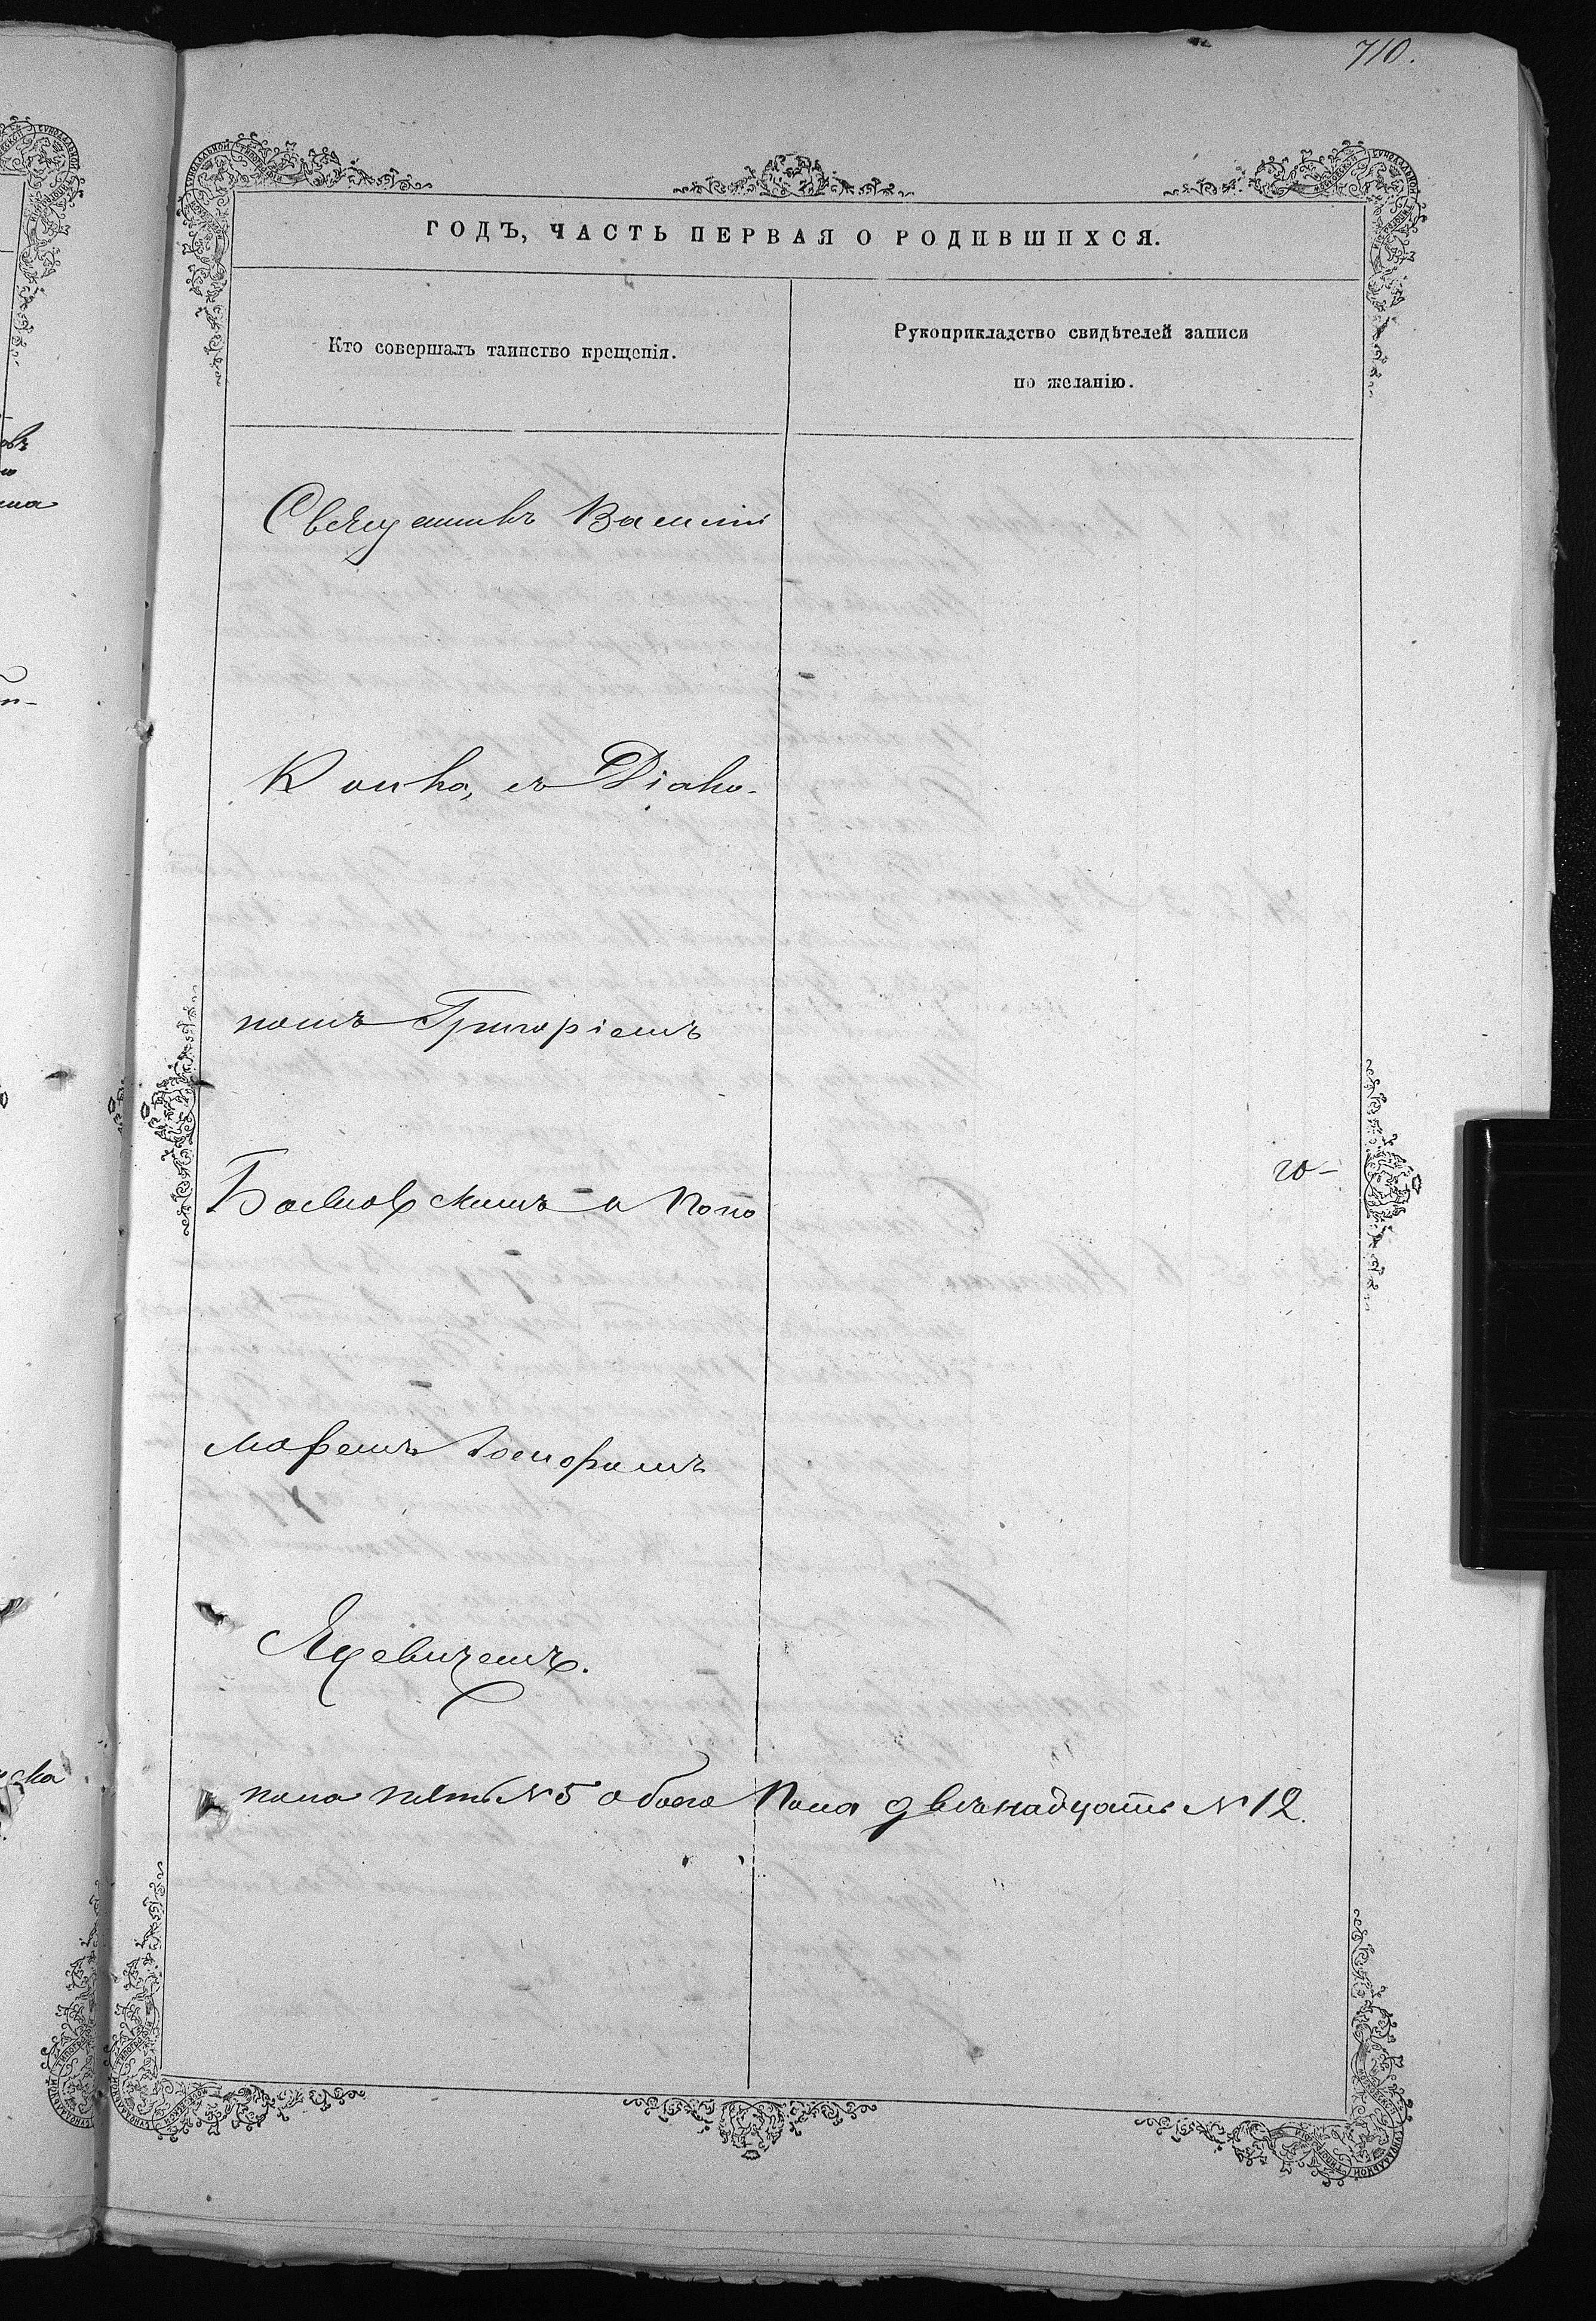 710.
ГОДЪ, ЧАСТЬ ПЕРВАЯ О РОДИВШИХСЯ.
Кто совершалъ таинство крещенія.
Рукоприкладство свидѣтелей записи
по желанію.
Священникъ Василій
съ Діако-
номъ Григоріемъ
и Поно
маремъ Іосифомъ
Яцевичемъ.
пола пять № 5 обоего Пола двѣнадцать № 12.